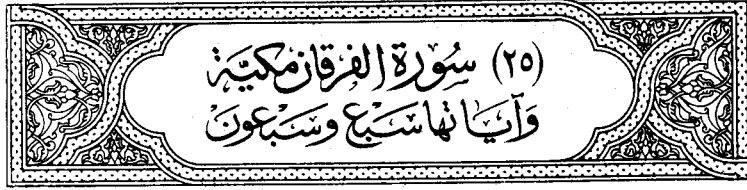 (٢٥) سُورَة الفرقان مكيَّة
وَآيَاتها سَبْع وَسَبْعُونَ